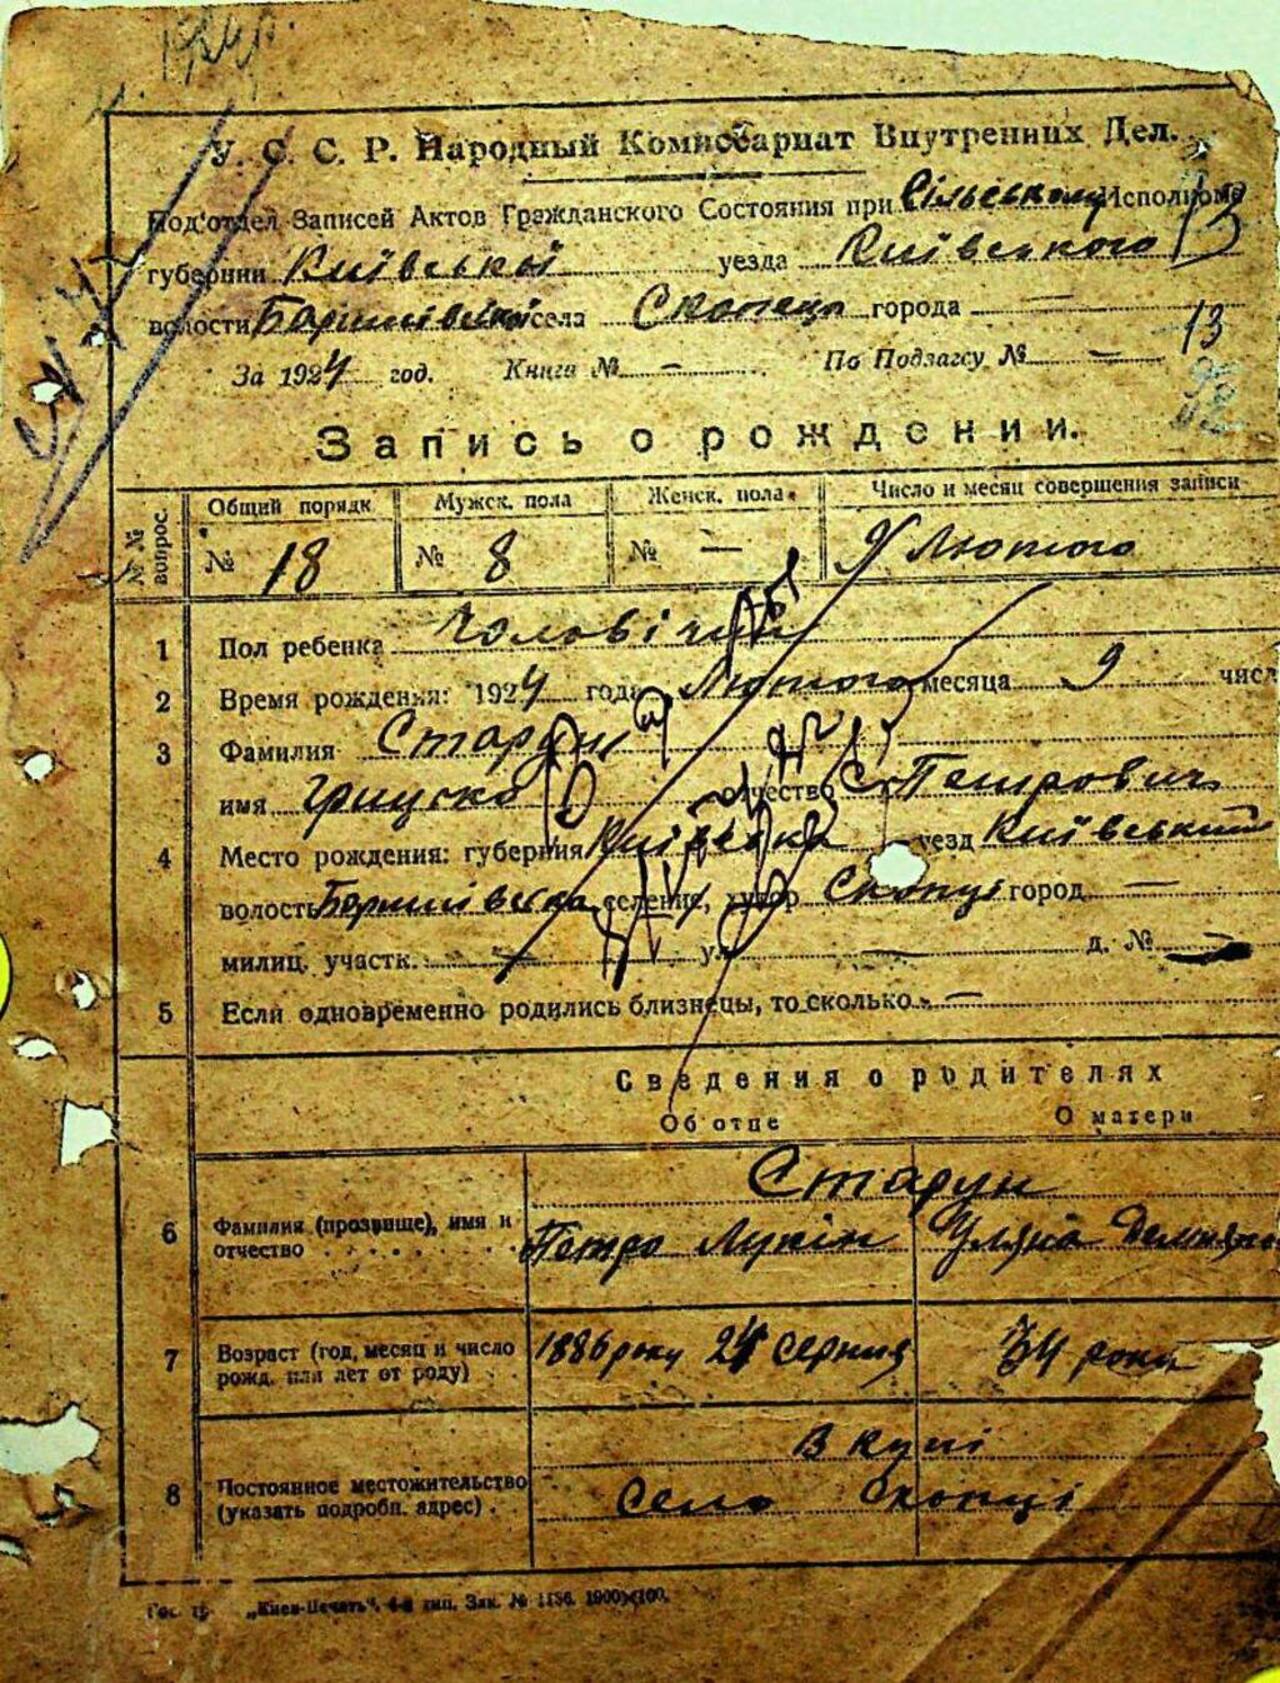 1924р.
У. С. С. Р. Народный Комиссариат Внутренних Дел.
Под'отдел Записей Актов Гражданского Состояния при Сільському Исполкоме
губернии Київської уезда Київського
волости Баришівської села Скопець города —
За 1924 год. Книга № — По Подзагсу № —
13
Запись о рождении.
№№ вопрос. Общий порядк Мужск. пола Женск. пола. Число и месяц совершения записи
№ 18 № 8 № — 9 Лютого
1 Пол ребенка Чоловічий
2 Время рождения: 1924 года Лютого месяца 9 числ
3 Фамилия Старун
имя Грицько отчество Петрович
4 Место рождения: губерния Київська уезд Київський
волость Баришівська селение, хутор Скопці город —
милиц. участк. — ул. — д. № —
5 Если одновременно родились близнецы, то сколько —
Сведения о родителях
Об отце О матери
Старун
6 Фамилия (прозвище), имя и отчество Петро Лукін Уляна
7 Возраст (год, месяц и число рожд. или лет от роду) 1886 року 24 серпня 34 роки
В купі
8 Постоянное местожительство (указать подробн. адрес). Село Скопці
„Киев-Печать“, 4-я тип. Зак. № 1136. 1900×100.